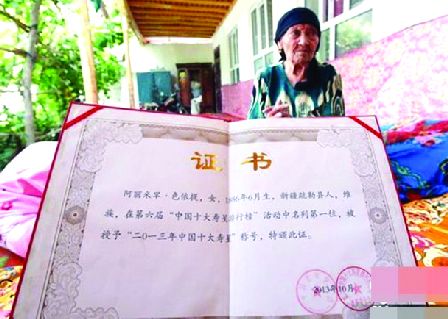 证书
阿丽米罕·色依提，女，1886年6月生，新疆疏勒县人，维
族，在第六届“中国十大寿星排行榜”活动中名列第一位，被
授予“二〇一三年中国十大寿星”称号，特颁此证。
2013年10月